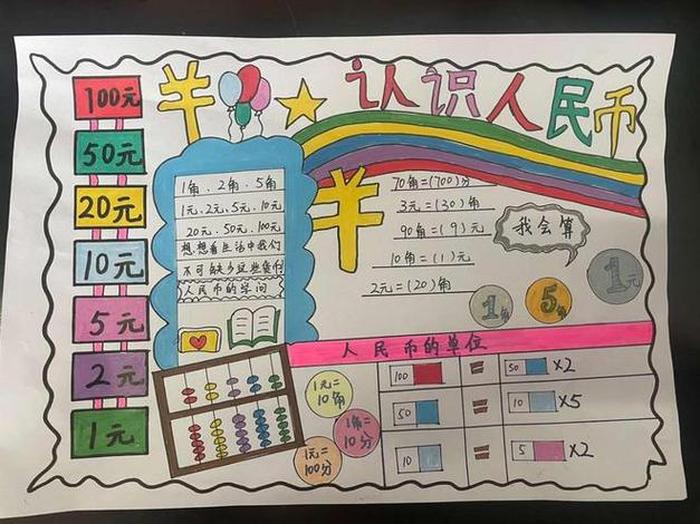 认识人民币
100元
50元
20元
10元
5元
2元
1元
1角、2角、5角
1元、2元、5元、10元
20元、50元、100元
想想看生活中我们
不可缺少这些货币
人民币的学问
70角=(700)分
3元=(30)角
90角=(9)元
10角=(1)元
2元=(20)角
我会算
1角
5角
1元
人民币的单位
1元=
10角
1角=
10分
1元=
100分
100 = 50 ×2
50 = 10 ×5
10 = 5 ×2